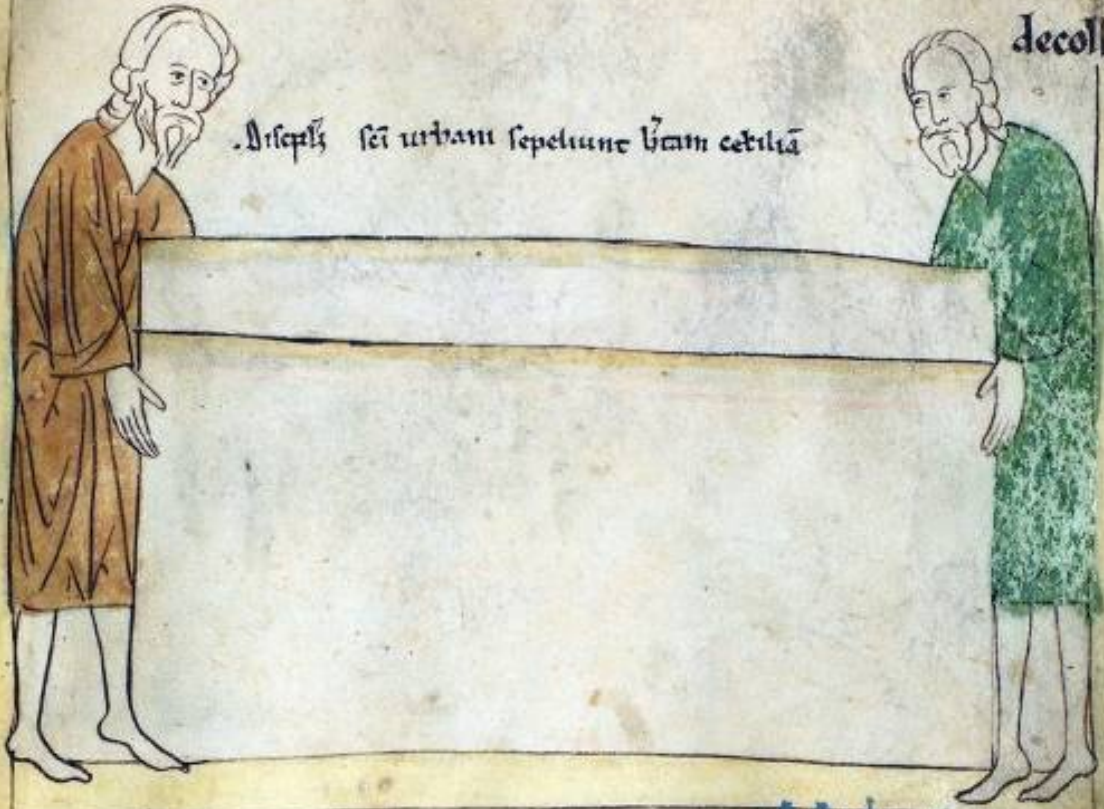 decoll
.Discipłi sc̄i urbani sepeliunt b̄tam ceciliā